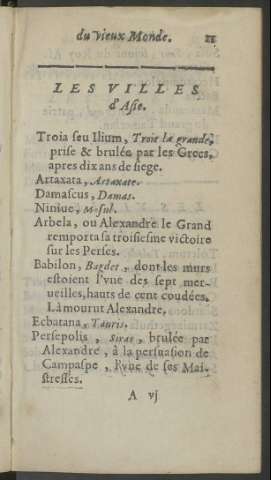 du Vieux Monde. 11
LES VILLES
d'Asie.
Troia seu Ilium, Troie la grande,
prise & brulée par les Grecs,
apres dix ans de siege.
Artaxata, Artaxate.
Damascus, Damas.
Niniue, Mosul.
Arbela, ou Alexandre le Grand
remporta sa troisiesme victoire
sur les Perses.
Babilon, Bagdet, dont les murs
estoient l'vne des sept mer-
ueilles, hauts de cent coudées.
Là mourut Alexandre.
Ecbatana, Tauris.
Persepolis, Siras, brulée par
Alexandre, à la persuasion de
Campaspe, l'vne de ses Mai-
stresses.
A vj